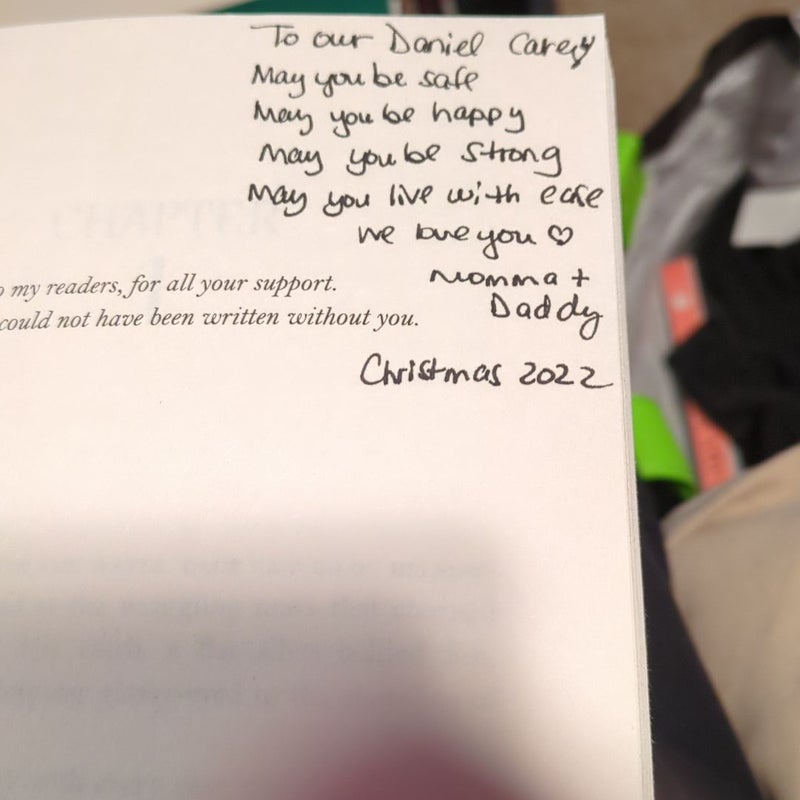 To our Daniel Carey
May you be safe
May you be happy
May you be strong
May you live with ease
we love you ♡
Momma +
Daddy
Christmas 2022
CHAPTER
my readers, for all your support.
could not have been written without you.